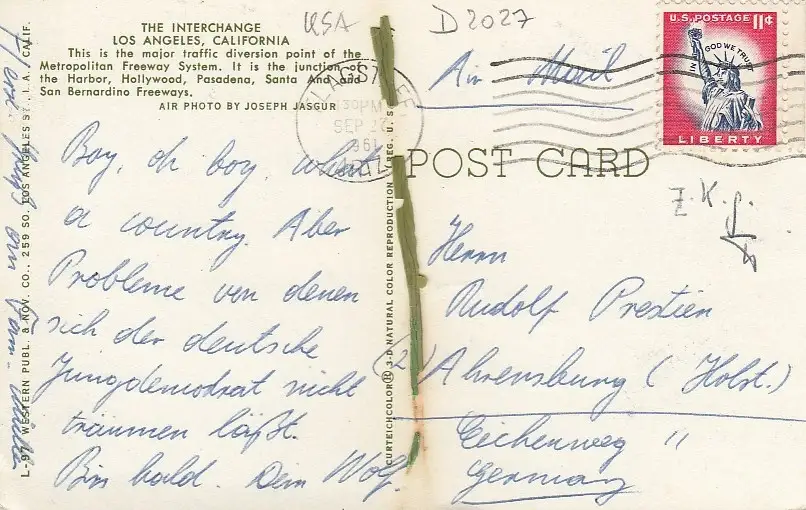 THE INTERCHANGE
LOS ANGELES, CALIFORNIA
This is the major traffic diversion point of the
Metropolitan Freeway System. It is the junction of
the Harbor, Hollywood, Pasadena, Santa Ana and
San Bernardino Freeways.
AIR PHOTO BY JOSEPH JASGUR
USA
D 2027
Air Mail
U.S. POSTAGE 11¢
IN GOD WE TRUST
LIBERTY
30 PM
SEP 27
1961
POST CARD
Z. K.
Boy, oh boy, what
a country. Aber
Probleme von denen
sich der deutsche
Jungdemokrat nicht
träumen läßt.
Bis bald. Dein Wolf.
Herrn
Rudolf Prestien
(2) Ahrensburg (Holst.)
Eichenweg 11
Germany
L-97 WESTERN PUBL. & NOV. CO., 259 SO. LOS ANGELES ST., L.A. CALIF.
CURTEICHCOLOR® 3-D NATURAL COLOR REPRODUCTION (REG. U.S.